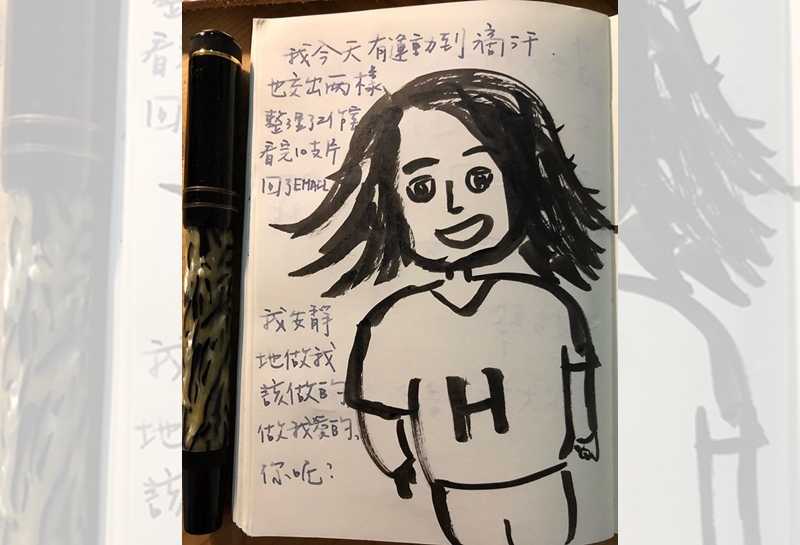 我今天有運動到滴汗.
也交出両樣
整理了21
看完10支片
回了EMAIL
我安靜
地做我
該做的
做我愛的、
你呢?
H